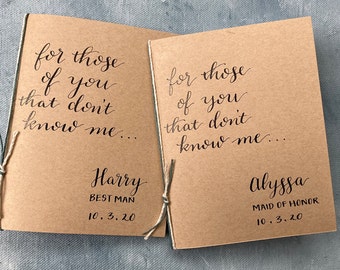 for those
of you
that don't
know me...
Harry
BEST MAN
10.3.20
for those
of you
that don't
know me...
Alyssa
MAID OF HONOR
10.3.20